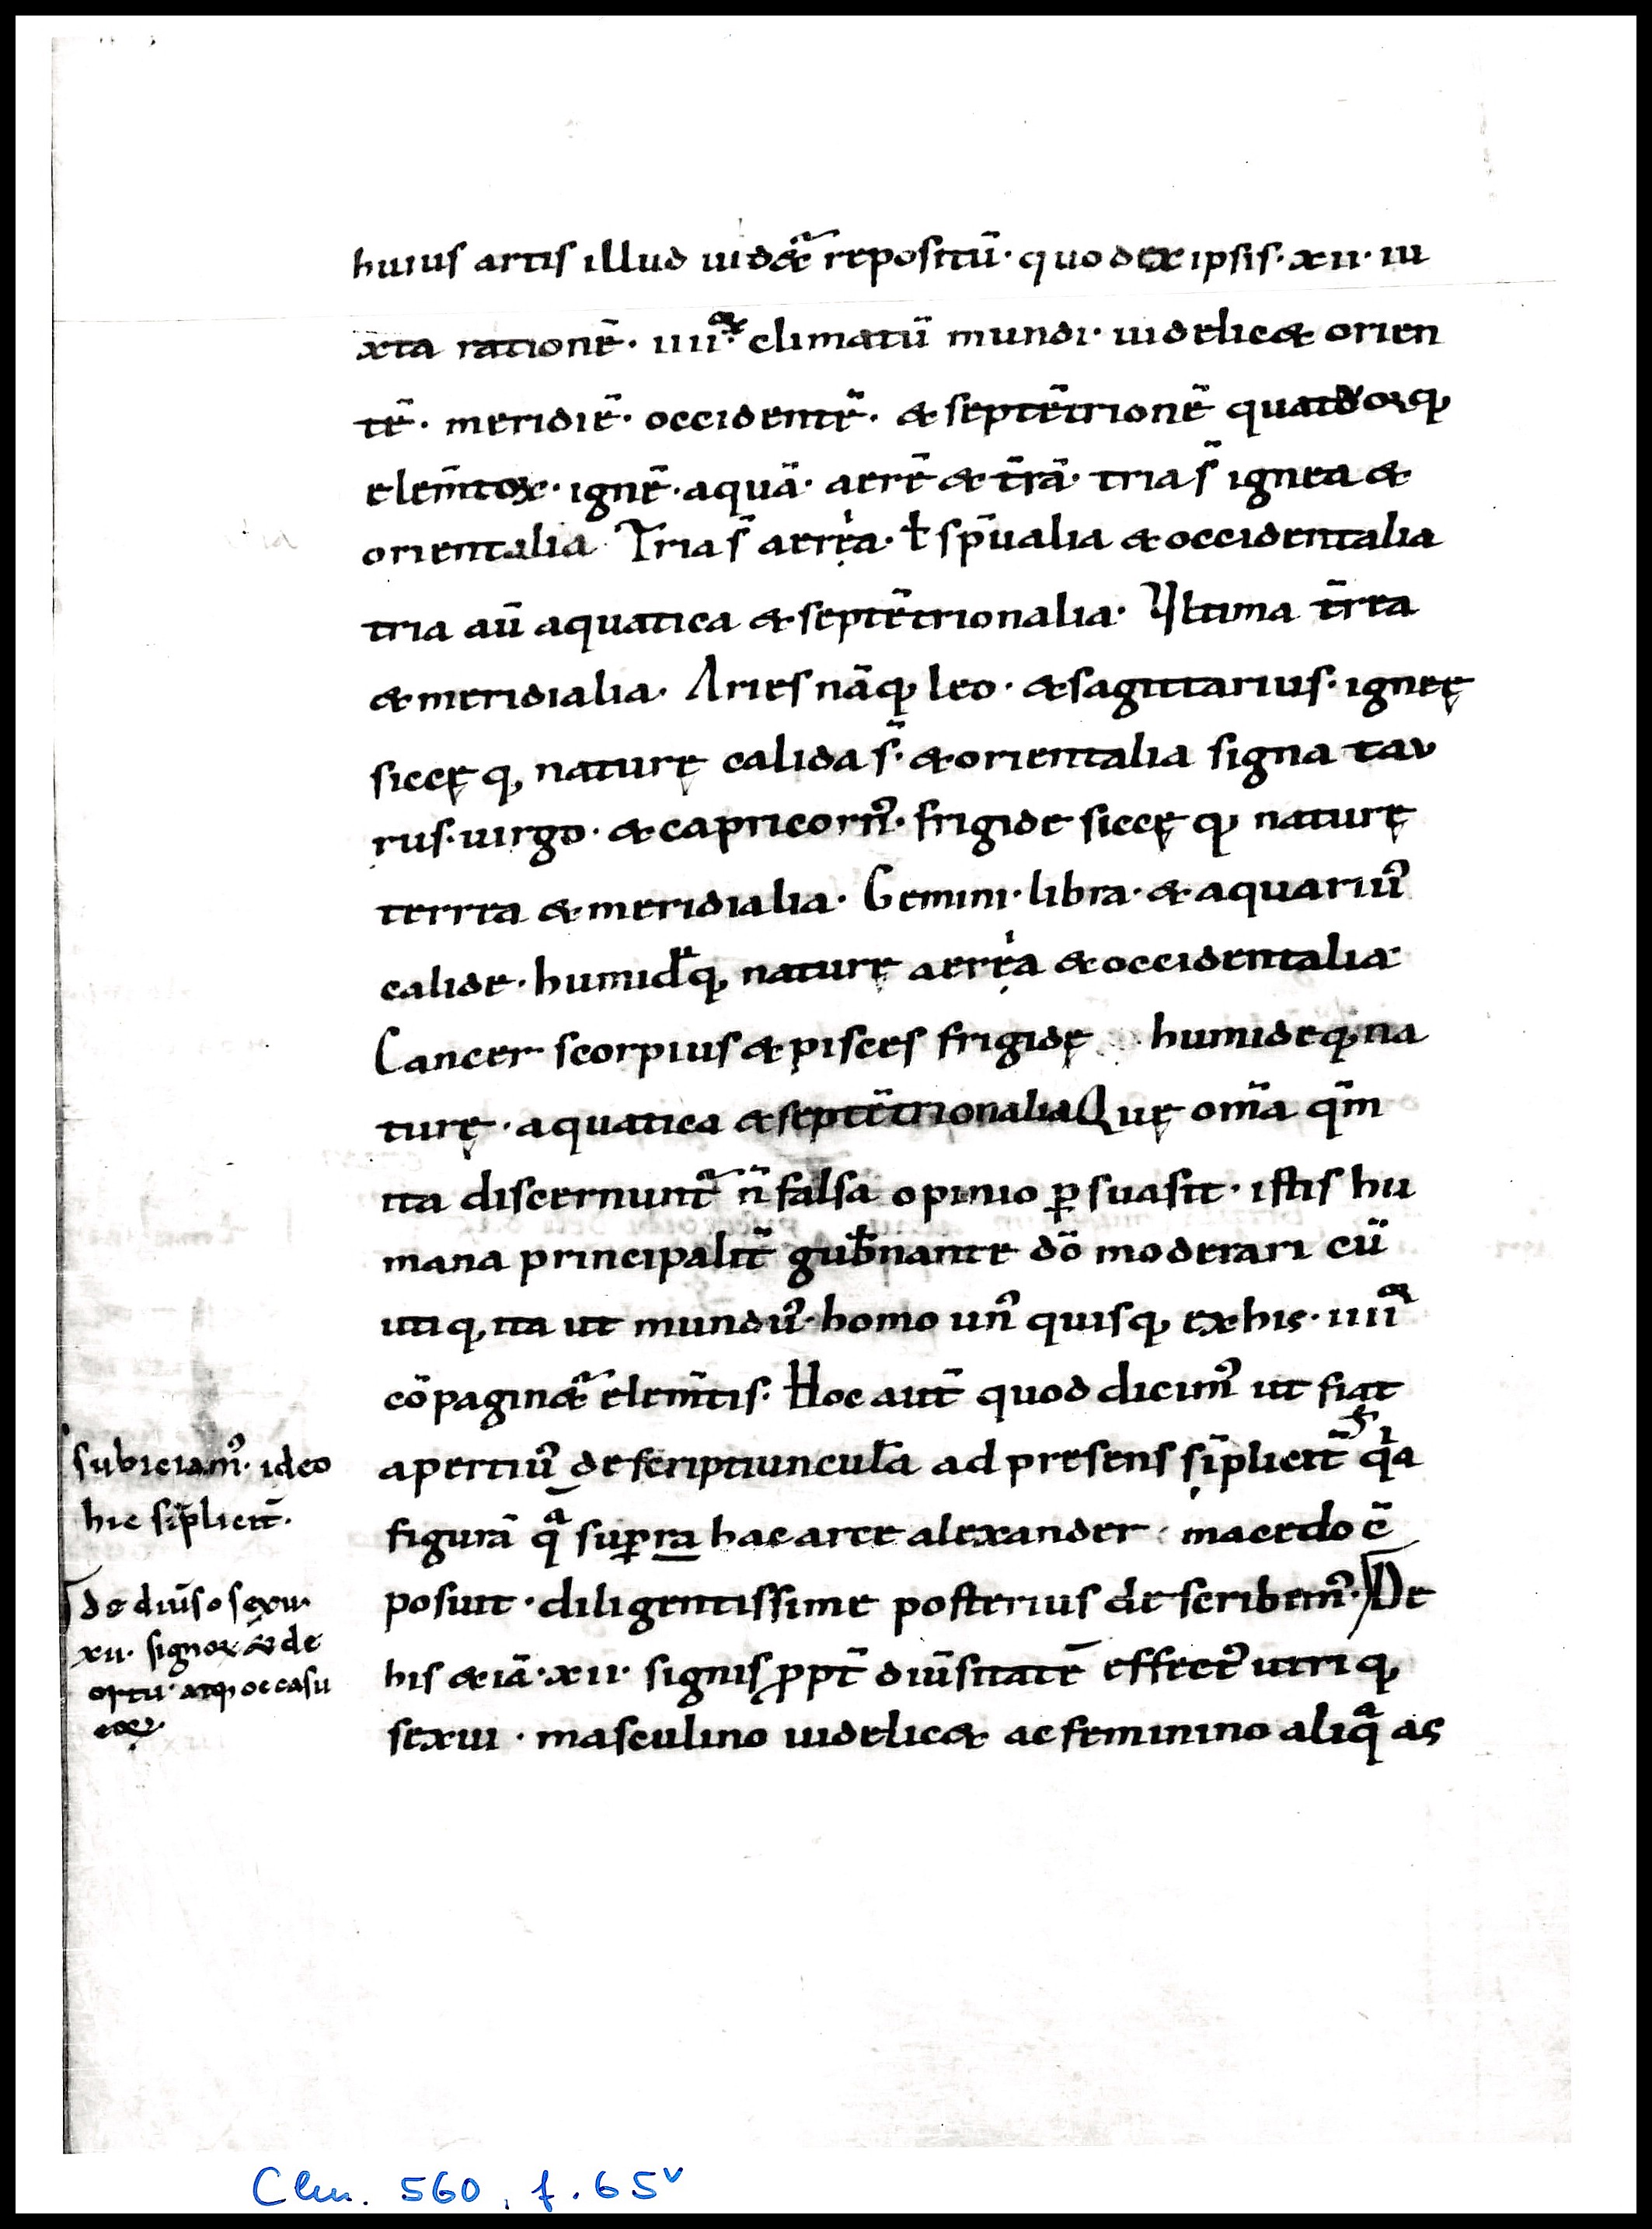 huius artis illud uidet᷑ repositū· quod ex ipsis· xii· iu
xta rationē· iiiiºꝝ climatū mundi· uidelicet orien
tē· meridiē· occidentē· & septētrionē quattuorq;
elem̄toꝝ· ignē· aquā· aerē & t̄rā· tria s̄ ignea &
orientalia Tria s̄ aeria· ł sp̄ualia & occidentalia
tria aū aquatica & septētrionalia· Vltima t̄rea
& meridialia· Aries nāq; leo· & sagittarius· igneę
siccęq; naturę calida s̄· & orientalia signa tau
rus· uirgo· & capricorn᾿· frigide siccęq; naturę
terrea & meridialia· Gemini· libra· & aquariu᾿
calide· humideq; naturę aeria & occidentalia·
Cancer scorpius & pisces frigidę humideq; na
turę· aquatica & septētrionalia Quę om̄a qm̄
ita discernunt᷑ n̄ falsa opinio ꝑsuasit· istis hu
mana principalit̄ gub̄nante dō moderari cū
utiq; ita ut mundu᾿· homo un᾿ quisq; ex his· iiiiºʳ
cōpaginat᷑ elem̄tis· Hoc aut̄ quod dicim᾿ ut fiat
apertiu᾿ descriptiuncula ad presens sīplicit̄ quia
figurā quā supra hac arce alexander macedo cō
posuit· diligentissime posterius describem᾿· De
his &iā· xii· signis ꝓpt̄ diūsitatē effect᾿ utriq;
sexui· masculino uidelicet ac feminino aliqua as
subiciam᾿· ideo
hic sīplicit̄·
de diūso sexu·
xii· signoꝝ & de
ortu atq; occasu
eoꝝ·
Clm. 560, f. 65ᵛ